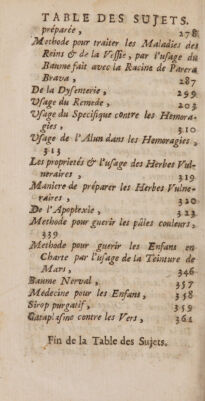 TABLE DES SUJETS.
préparée, 278
Methode pour traiter les Maladies des
Reins & de la Vessie, par l'usage du
Baume fait avec la Racine de Parera
Brava, 287
De la Dysenterie, 299
Usage du Remede, 303
Usage du Specifique contre les Hemora-
gies, 310
Usage de l'Alun dans les Hemoragies,
313
Les proprietés & l'usage des Herbes Vul-
neraires, 319
Maniere de préparer les Herbes Vulne-
raires, 320
De l'Apoplexie, 323
Methode pour guerir les pâles couleurs,
339
Methode pour guerir les Enfans en
Charte par l'usage de la Teinture de
Mars, 346
Baume Nerval, 357
Medecine pour les Enfans, 358
Sirop purgatif, 359
Cataplasme contre les Vers, 361
Fin de la Table des Sujets.